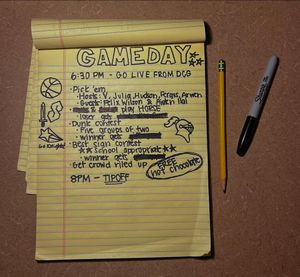 GAMEDAY
6:30 PM - GO LIVE FROM DCG
• Pick 'em
• Hosts: V, Julia, Hudson, Fergus, Arwen
• Guest: Felix Wilson &
& play HORSE
• loser gets
• Dunk contest
• Five groups of two
• winner gets
• Best sign contest
★★ school appropriate ★★
• winner gets
• Get crowd riled up
FREE
hot chocolate
8PM - TIPOFF
Go Knights!
Sharpie